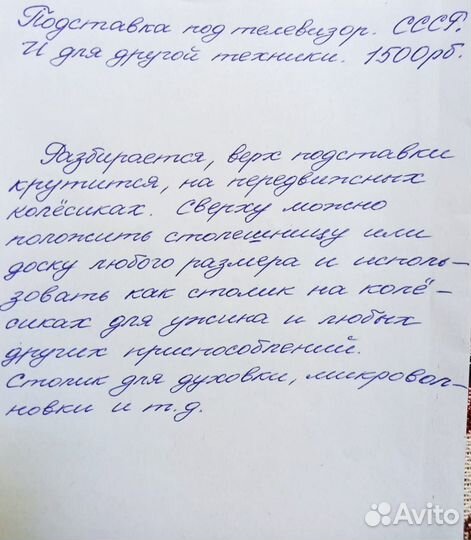 Подставка под телевизор. СССР.
И для другой техники. 1500рб.
Разбирается, верх подставки
крутится, на передвижных
колёсиках. Сверху можно
положить столешницу или
доску любого размера и исполь-
зовать как столик на колё-
сиках для ужина и любых
других приспособлений.
Столик для духовки, микровол-
новки и т.д.
Avito